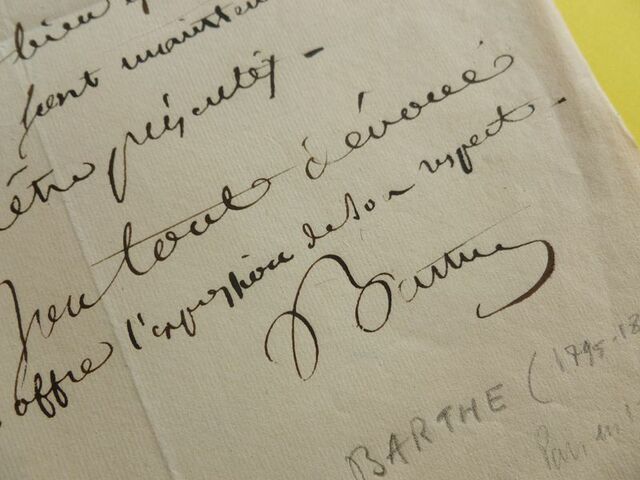 bien
sont mainten
être présentés -
Son tout dévoué
offre l'expression de son respect -
Barthe
BARTHE (1795-18